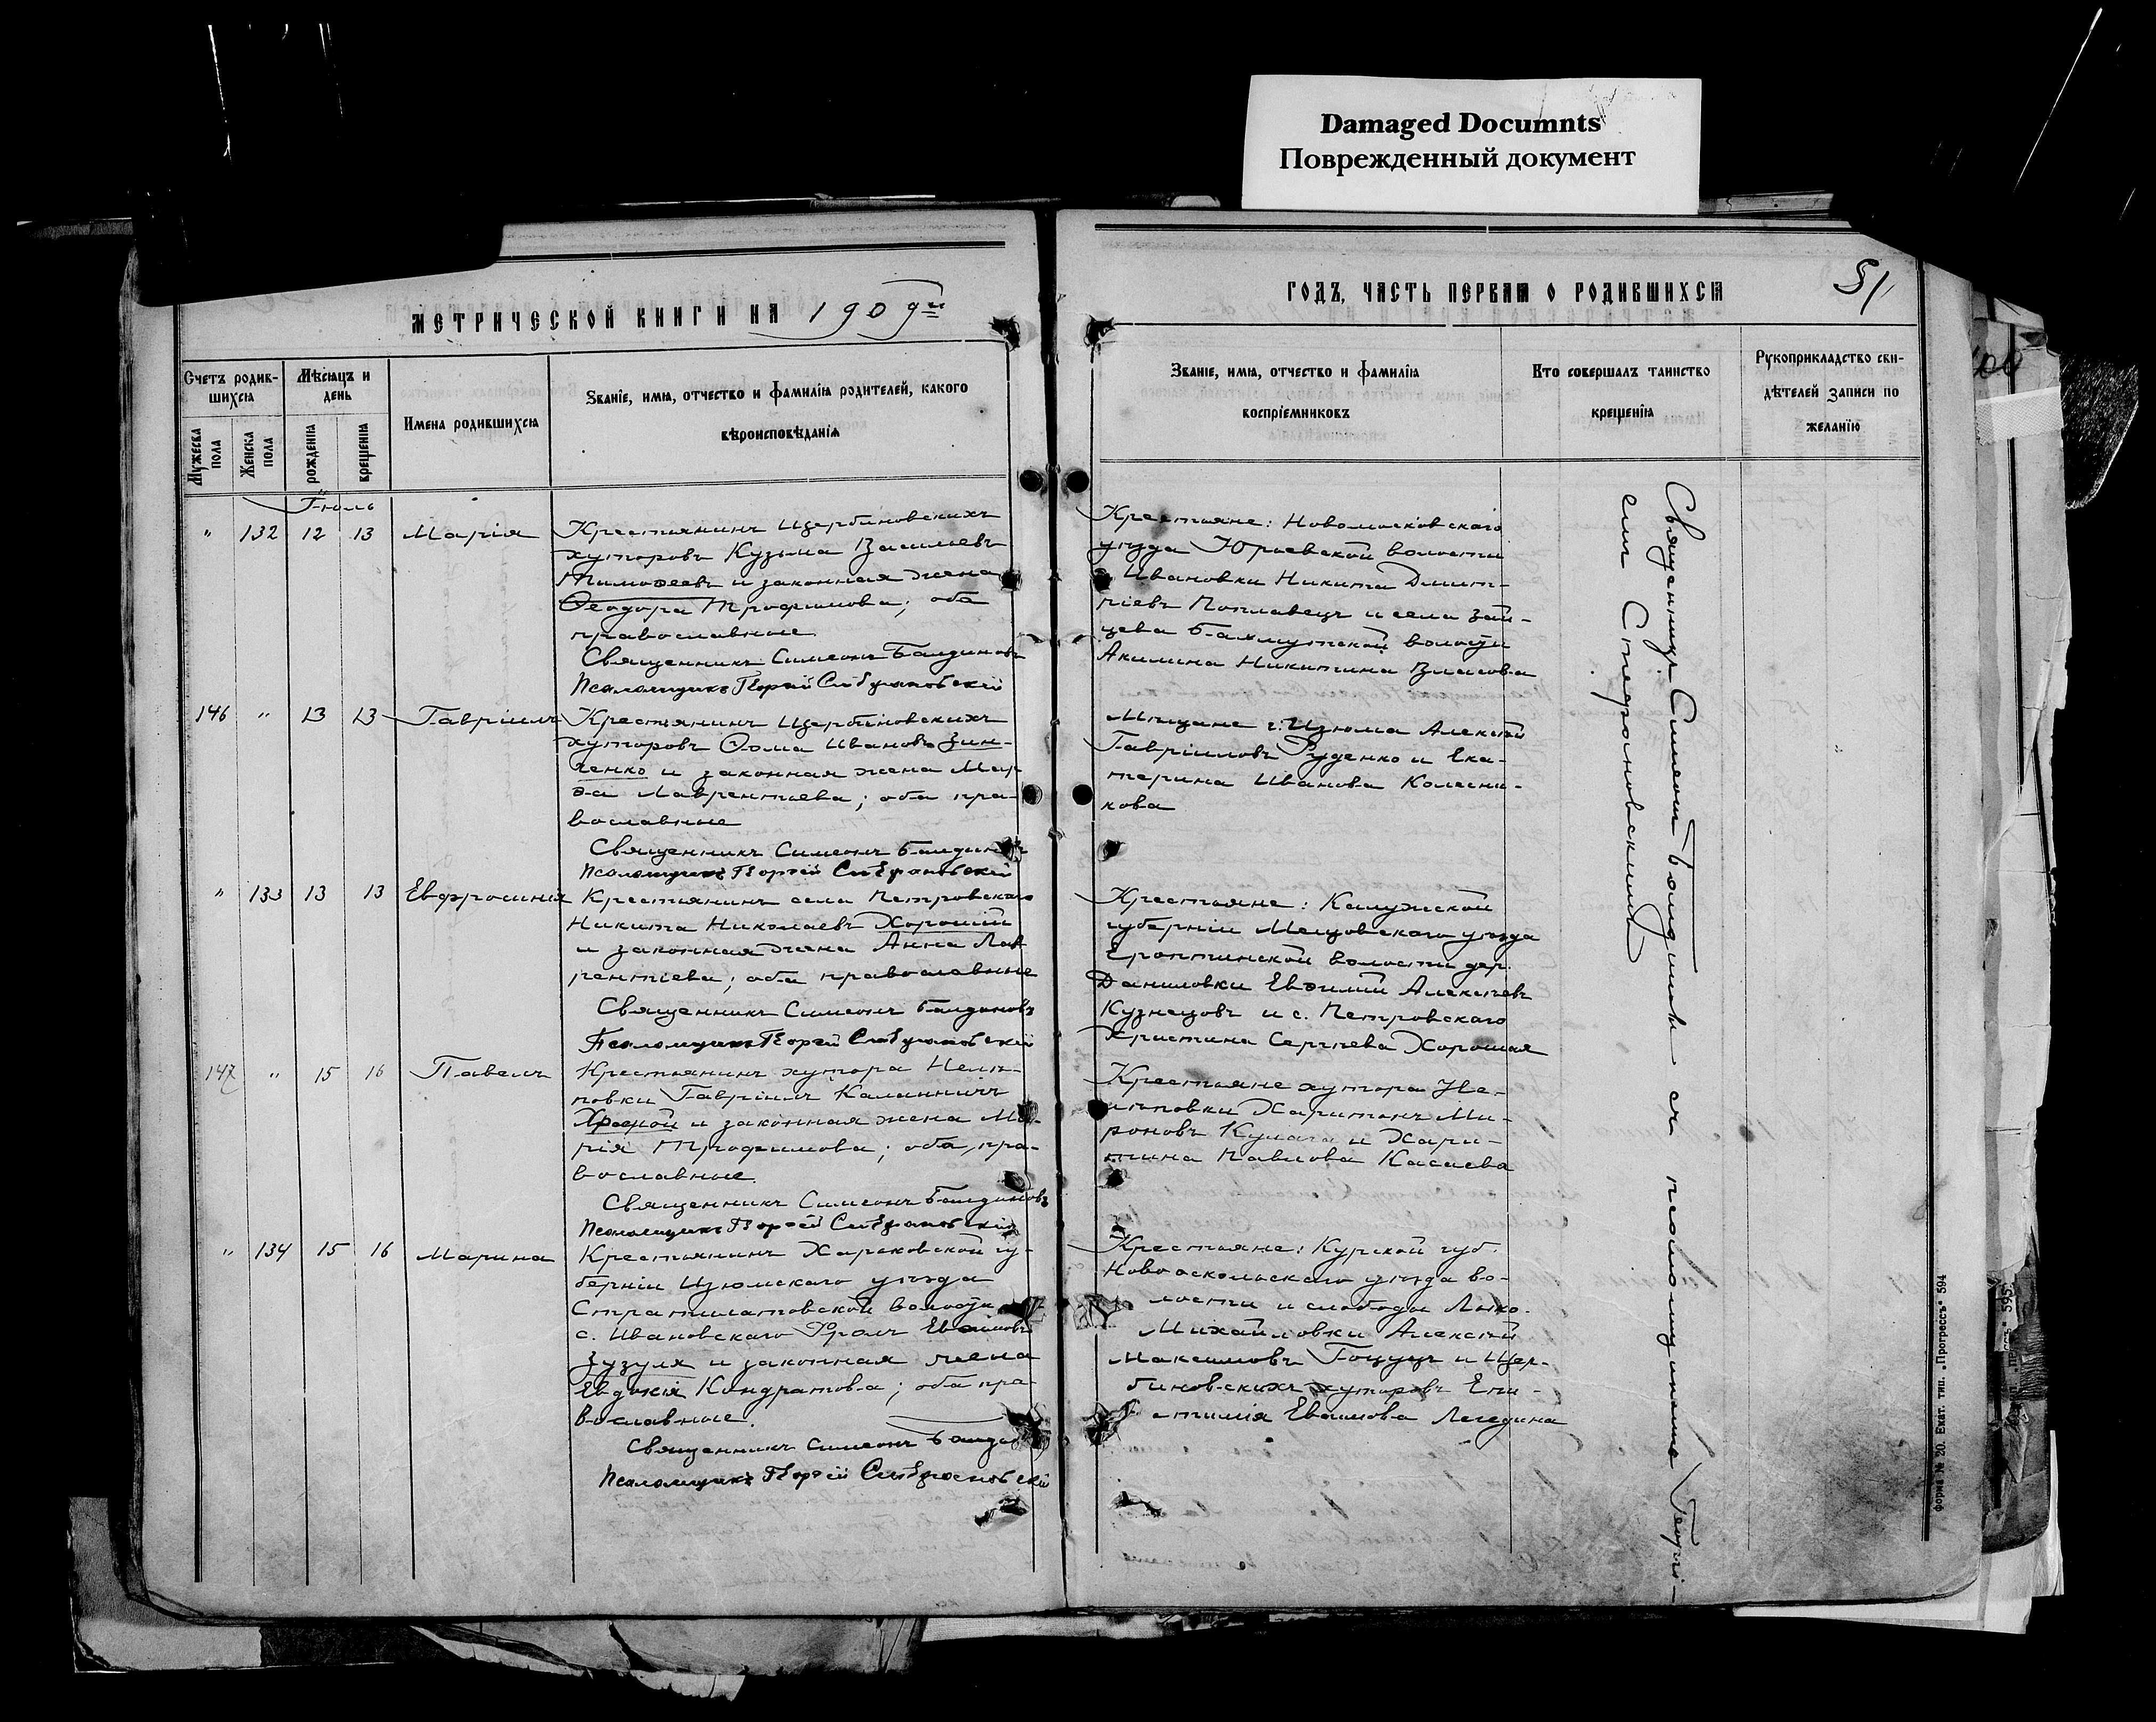 Damaged Documnts
Поврежденный документ
МЕТРИЧЕСКОЙ КНИГИ НА 1909 й
ГОДЪ, ЧАСТЬ ПЕРВАЯ О РОДИВШИХСЯ
51
Счетъ родив-
шихся
Мѣсяцъ и
день
Имена родившихся
Званіе, имя, отчество и фамилія родителей, какого
вѣроисповѣданія
Мужеска пола
Женска пола
рожденія
крещенія
Званіе, имя, отчество и фамилія
воспріемниковъ
Кто совершалъ таинство
крещенія
Рукоприкладство сви-
дѣтелей записи по
желанію
Іюль
" 132 12 13 Марія
Крестьянинъ Щербиновскихъ
хуторовъ Кузьма Васильевъ
Тимофеевъ и законная жена
Ѳеодора Трофимова; оба
православные
Священникъ Симеонъ Балдиновъ
Псаломщикъ Георгій
Крестьяне: Новомосковскаго
уѣзда Юрьевской волости
Ивановки Никита Дмит-
ріевъ Поплавецъ и села Зай-
цева Бахмутской волости
Акилина Никитина Власова
146 " 13 13 Гавріилъ
Крестьянинъ Щербиновскихъ
хуторовъ Ѳома Ивановъ Зин-
ченко и законная жена Мар-
ѳа Лаврентьева; оба пра-
вославные
Священникъ Симеонъ Балдиновъ
Псаломщикъ Георгій
Мѣщане г. Изюма Алексѣй
Гавріиловъ Руденко и Ека-
терина Иванова Колесни-
кова
" 133 13 13 Евфросинія
Крестьянинъ села Петровскаго
Никита Николаевъ Хорошій
и законная жена Анна Лав
рентіева; оба православные
Священникъ Симеонъ Балдиновъ
Псаломщикъ Георгій
Крестьяне: Калужской
губерніи Мещовскаго уѣзда
волости дер.
Даниловки Евѳимій Алексѣевъ
Кузнецовъ и с. Петровскаго
Христина Сергѣева Хорошая
147 " 15 16 Павелъ
Крестьянинъ хутора Нелѣ-
повки Гавріилъ Калинничъ
и законная жена Ма-
рія Трофимова; оба пра-
вославные.
Священникъ Симеонъ Балдиновъ
Псаломщикъ Георгій
Крестьяне хутора Не-
лѣповки Харитонъ Ми-
роновъ Кулага и Хари-
тина Павлова Касаева
" 134 15 16 Марина
Крестьянинъ Харьковской гу-
берніи Изюмскаго уѣзда
Стратилатовской волости
с. Ивановскаго Фролъ Евѳимовъ
Зузуля и законная жена
Евдокія Кондратова; оба пра-
вославные.
Священникъ Симеонъ Балди
Псаломщикъ Георгій
Крестьяне: Курской губ.
Новооскольскаго уѣзда во-
лости и слободы
Михайловки Алексѣй
Максимовъ и Щер-
биновскихъ хуторовъ Епи-
стимія Евѳимова Легедина
Священникъ Симеонъ Балдиновъ съ псаломщикомъ Георгі-
емъ
Форма № 20. Екат. тип. „Прогрессъ“ 594